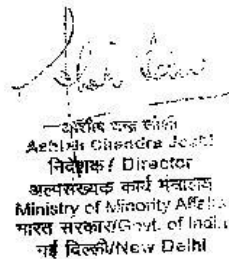 आशीष चन्द्र जोशी
Ashish Chandra Joshi
निदेशक / Director
अल्पसंख्यक कार्य मंत्रालय
Ministry of Minority Affairs
भारत सरकार/Govt. of India
नई दिल्ली/New Delhi